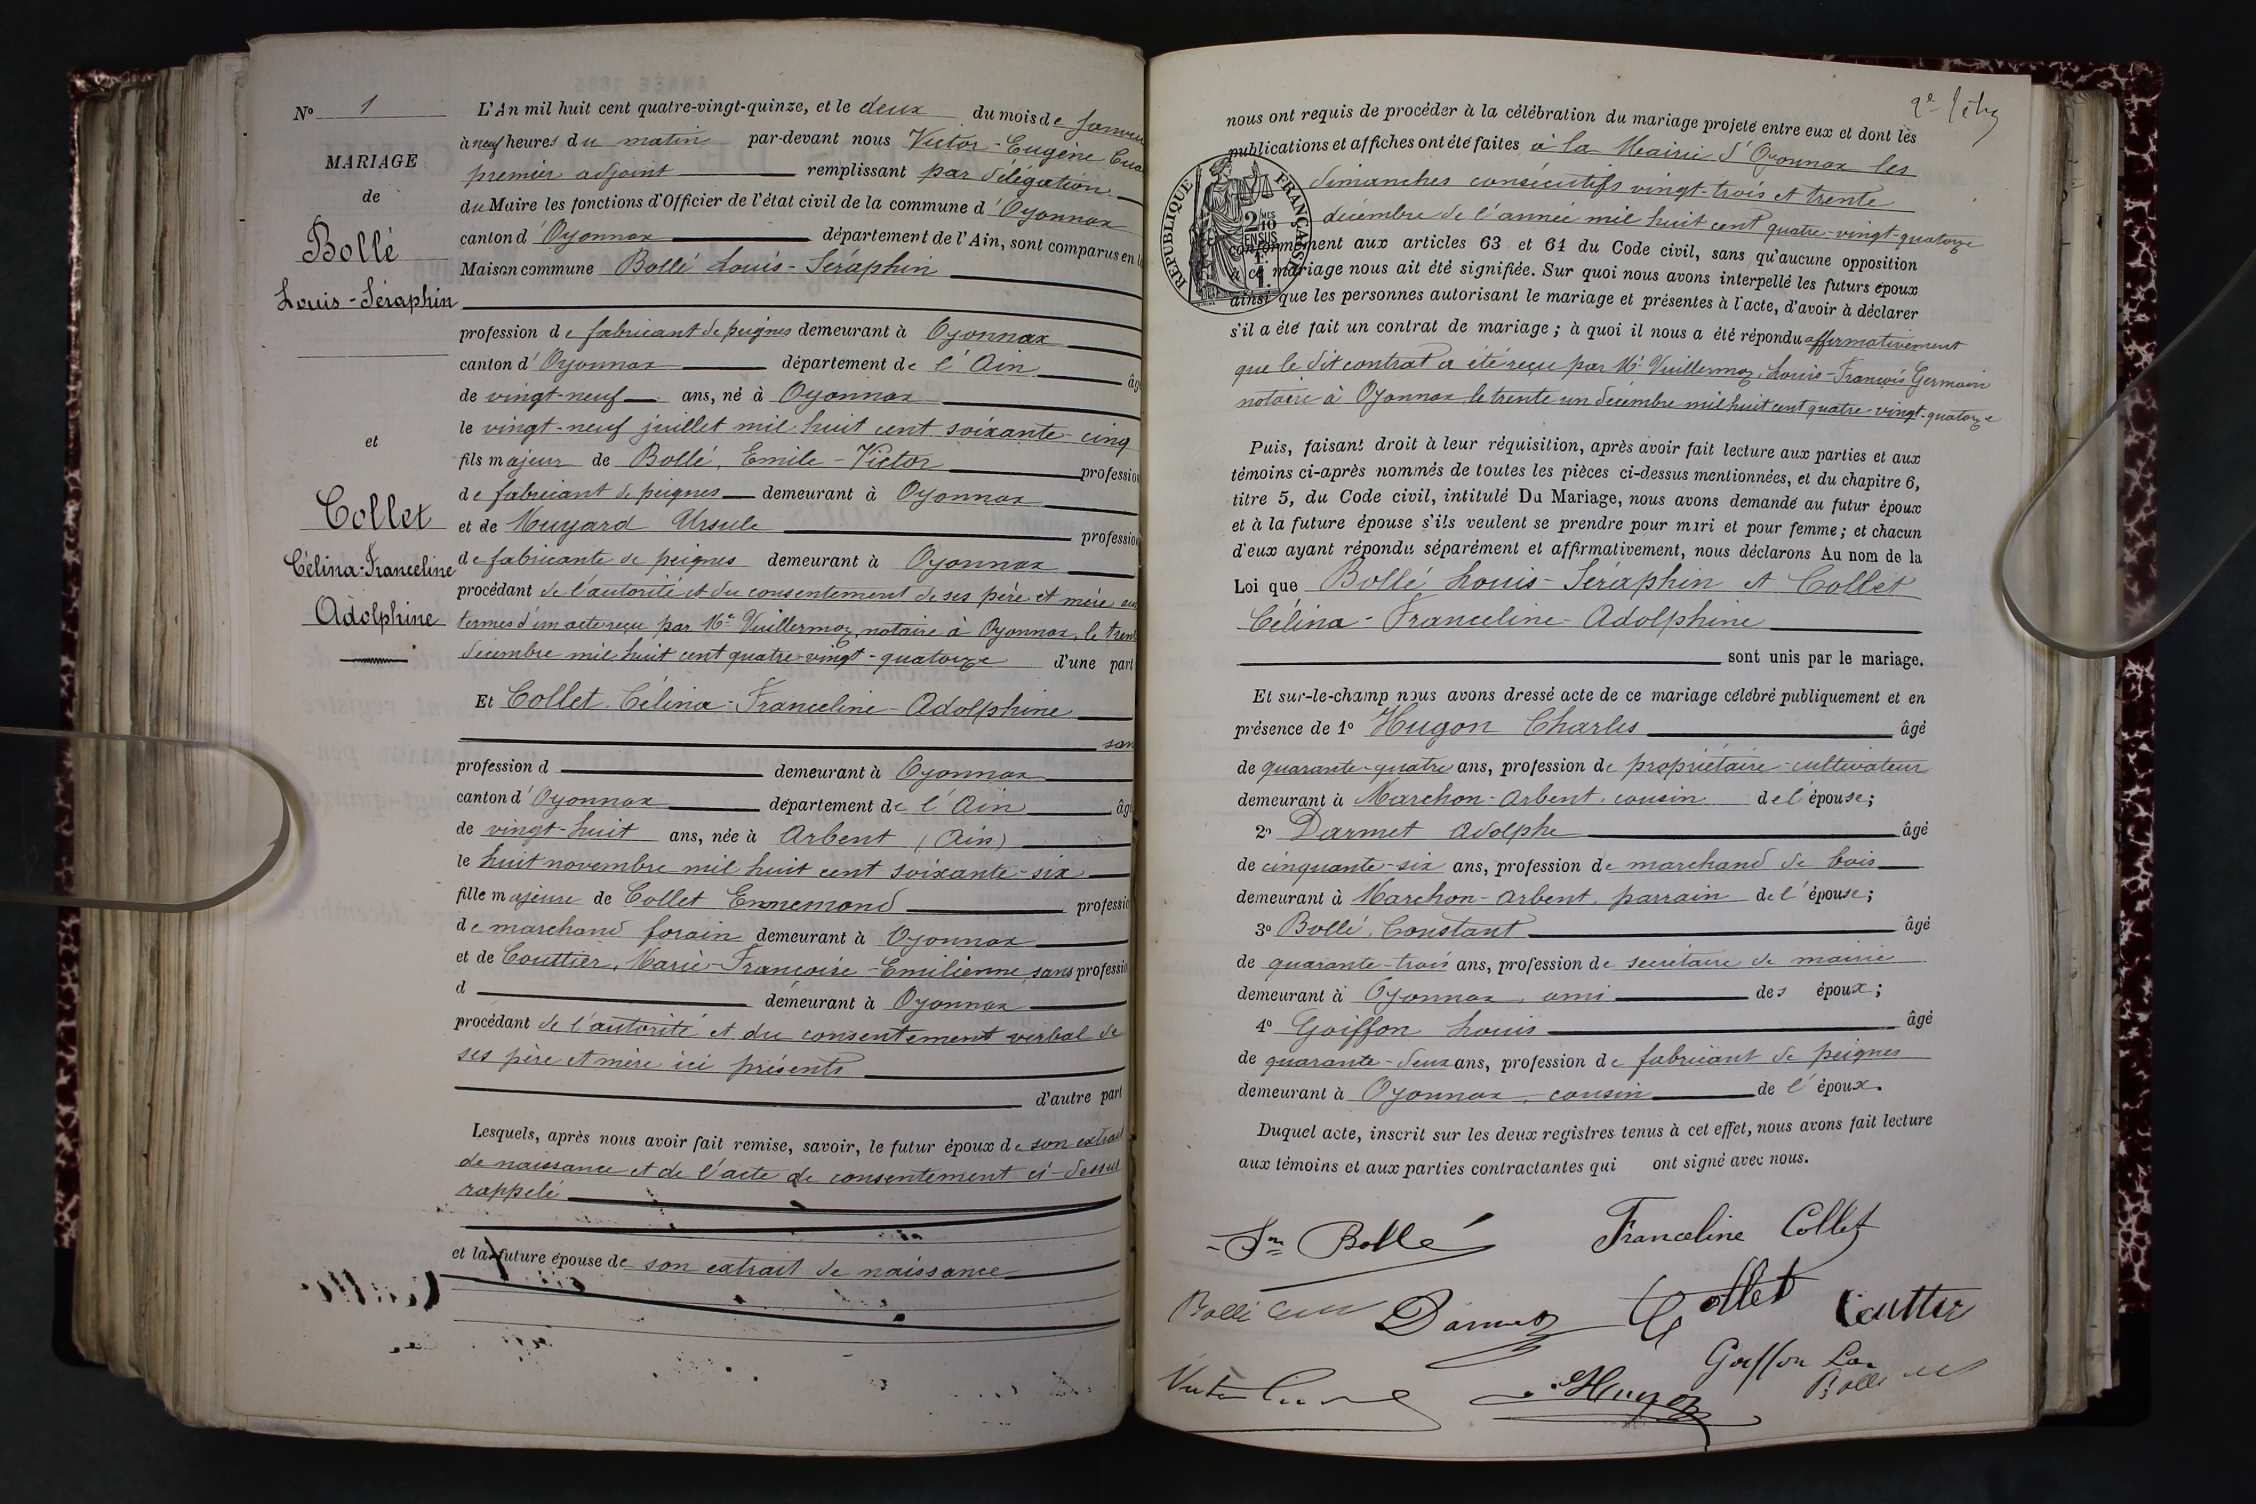 N° 1
MARIAGE
de
Bollé
Louis-Séraphin
et
Collet
Célina-Franceline
Adolphine
L'An mil huit cent quatre-vingt-quinze, et le deux du mois de
à neuf heures du matin par-devant nous Victor-Eugène
premier adjoint remplissant par délégation
du Maire les fonctions d'Officier de l'état civil de la commune d'Oyonnax
canton d'Oyonnax département de l'Ain, sont comparus en
Maison commune Bollé Louis-Séraphin
profession de fabricant de peignes demeurant à Oyonnax
canton d'Oyonnax département de l'Ain
de vingt-neuf ans, né à Oyonnax
le vingt-neuf juillet mil huit cent soixante-cinq
fils majeur de Bollé, Emile-Victor profession
de fabricant de peignes demeurant à Oyonnax
et de Muyard Ursule profession
de fabricante de peignes demeurant à Oyonnax
procédant de l'autorité et du consentement de ses père et mère aux
termes d'un acte reçu par Me Vuillermoz, notaire à Oyonnax, le trente
décembre mil huit cent quatre-vingt-quatorze d'une part
Et Collet Célina-Franceline-Adolphine
sans
profession d demeurant à Oyonnax
canton d'Oyonnax département de l'Ain âgé
de vingt-huit ans, née à Arbent (Ain)
le huit novembre mil huit cent soixante-six
fille majeure de Collet Ennemond profession
de marchand forain demeurant à Oyonnax
et de Couttier, Marie-Françoise-Emilienne, sans profession
d demeurant à Oyonnax
procédant de l'autorité et du consentement verbal de
ses père et mère ici présents
d'autre part
Lesquels, après nous avoir fait remise, savoir, le futur époux de son extrait
de naissance et de l'acte de consentement ci-dessus
rappelé
et la future épouse de son extrait de naissance
nous ont requis de procéder à la célébration du mariage projeté entre eux et dont les
publications et affiches ont été faites à la Mairie d'Oyonnax les
dimanches consécutifs vingt-trois et trente
décembre de l'année mil huit cent quatre-vingt-quatorze
conformément aux articles 63 et 64 du Code civil, sans qu'aucune opposition
à ce mariage nous ait été signifiée. Sur quoi nous avons interpellé les futurs époux
ainsi que les personnes autorisant le mariage et présentes à l'acte, d'avoir à déclarer
s'il a été fait un contrat de mariage; à quoi il nous a été répondu affirmativement
que le dit contrat a été reçu par Me Vuillermoz, Louis-François Germain
notaire à Oyonnax le trente un décembre mil huit cent quatre-vingt-quatorze
RÉPUBLIQUE FRANÇAISE
2 MES
10
EN SUS
Puis, faisant droit à leur réquisition, après avoir fait lecture aux parties et aux
témoins ci-après nommés de toutes les pièces ci-dessus mentionnées, et du chapitre 6,
titre 5, du Code civil, intitulé Du Mariage, nous avons demandé au futur époux
et à la future épouse s'ils veulent se prendre pour mari et pour femme; et chacun
d'eux ayant répondu séparément et affirmativement, nous déclarons Au nom de la
Loi que Bollé Louis-Séraphin et Collet
Célina-Franceline-Adolphine
sont unis par le mariage.
Et sur-le-champ nous avons dressé acte de ce mariage célébré publiquement et en
présence de 1° Hugon Charles âgé
de quarante-quatre ans, profession de propriétaire-cultivateur
demeurant à Marchon-Arbent, cousin de l'épouse;
2° Darmet Adolphe âgé
de cinquante-six ans, profession de marchand de bois
demeurant à Marchon-Arbent, parrain de l'épouse;
3° Bollé Constant âgé
de quarante-trois ans, profession de secrétaire de mairie
demeurant à Oyonnax, ami des époux;
4° Goiffon Louis âgé
de quarante-deux ans, profession de fabricant de peignes
demeurant à Oyonnax, cousin de l'époux.
Duquel acte, inscrit sur les deux registres tenus à cet effet, nous avons fait lecture
aux témoins et aux parties contractantes qui ont signé avec nous.
Sin Bollé Franceline Collet
Bollé Darmet Collet Couttier
Goiffon Lou
Victor Hugon Bollé